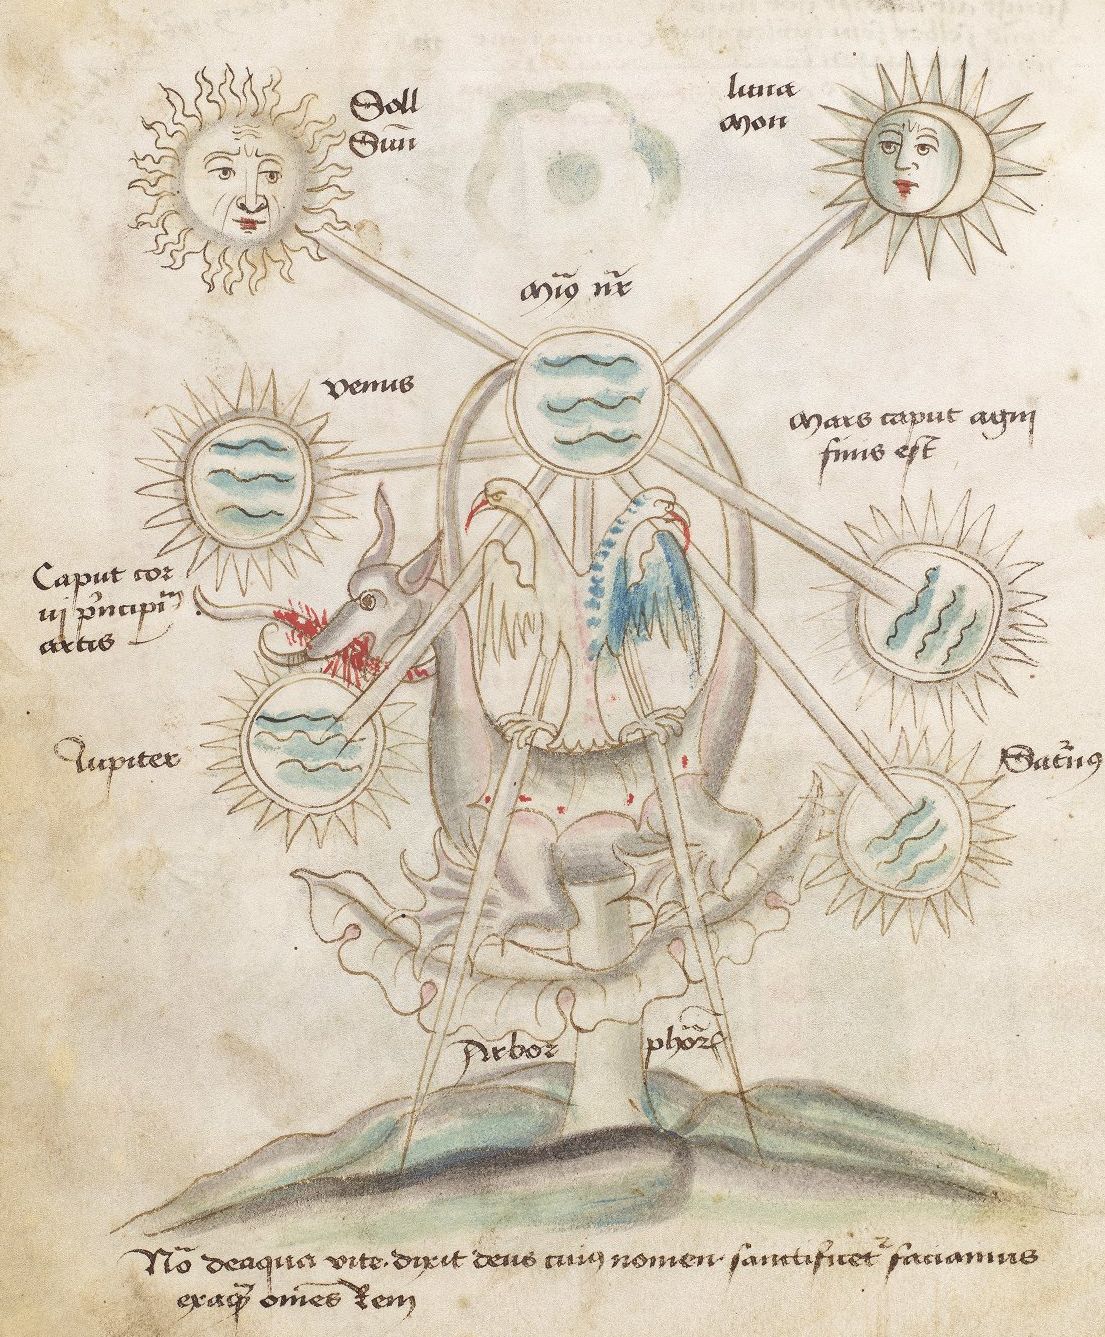 Soll
Sun̄
luna
Mon
Mi9 nr̄
Venus
Mars caput agni
finis est
Caput cor
vj p̄ncipiu̅
artis
Jupiter
Sat̄n9
Arbor phōr̄
Nō deaqua vite dixit deus cui9 nomen sanctificet᷑ faciamus
exaq̄ om̄es Rem